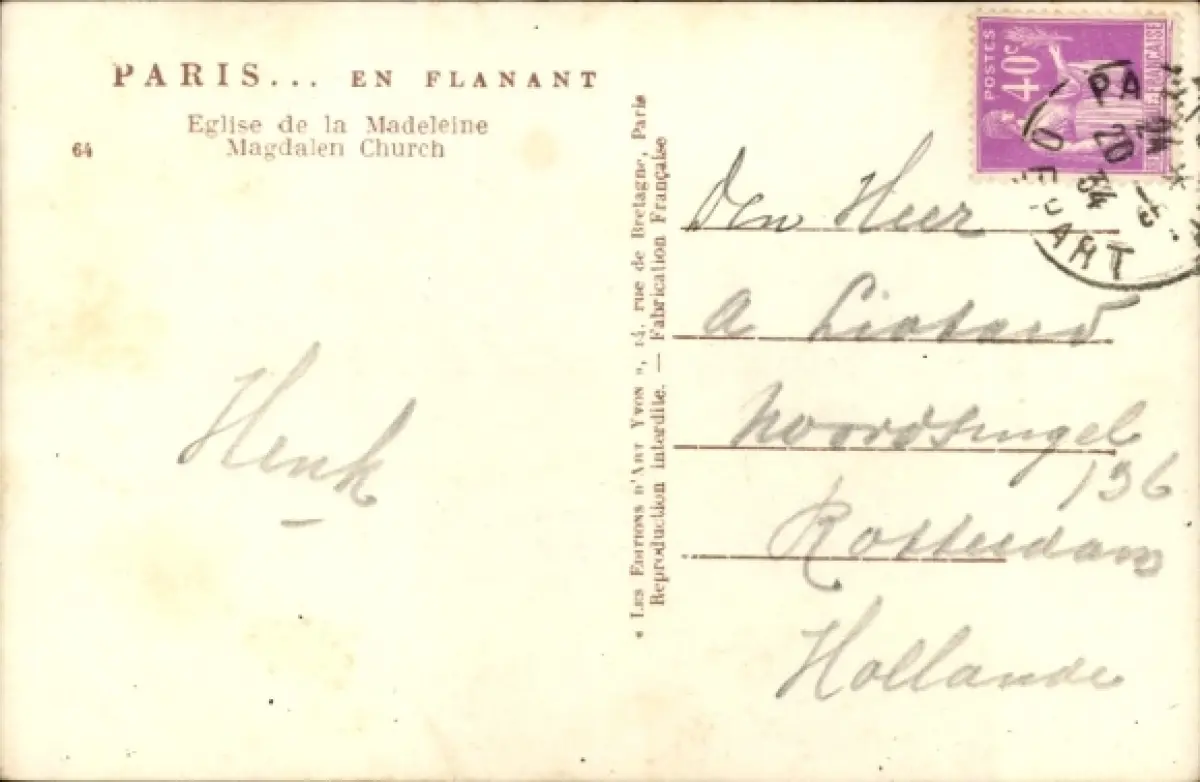 PARIS... EN FLANANT
Eglise de la Madeleine
Magdalen Church
64
Henk
« LES EDITIONS D'ART YVON », 14, rue de Bretagne, Paris
Reproduction interdite. — Fabrication Française
POSTES
40c
PA
20
34
DEPART
Den Heer
A Liotard
Noordsingel
136
Rotterdam
Hollande